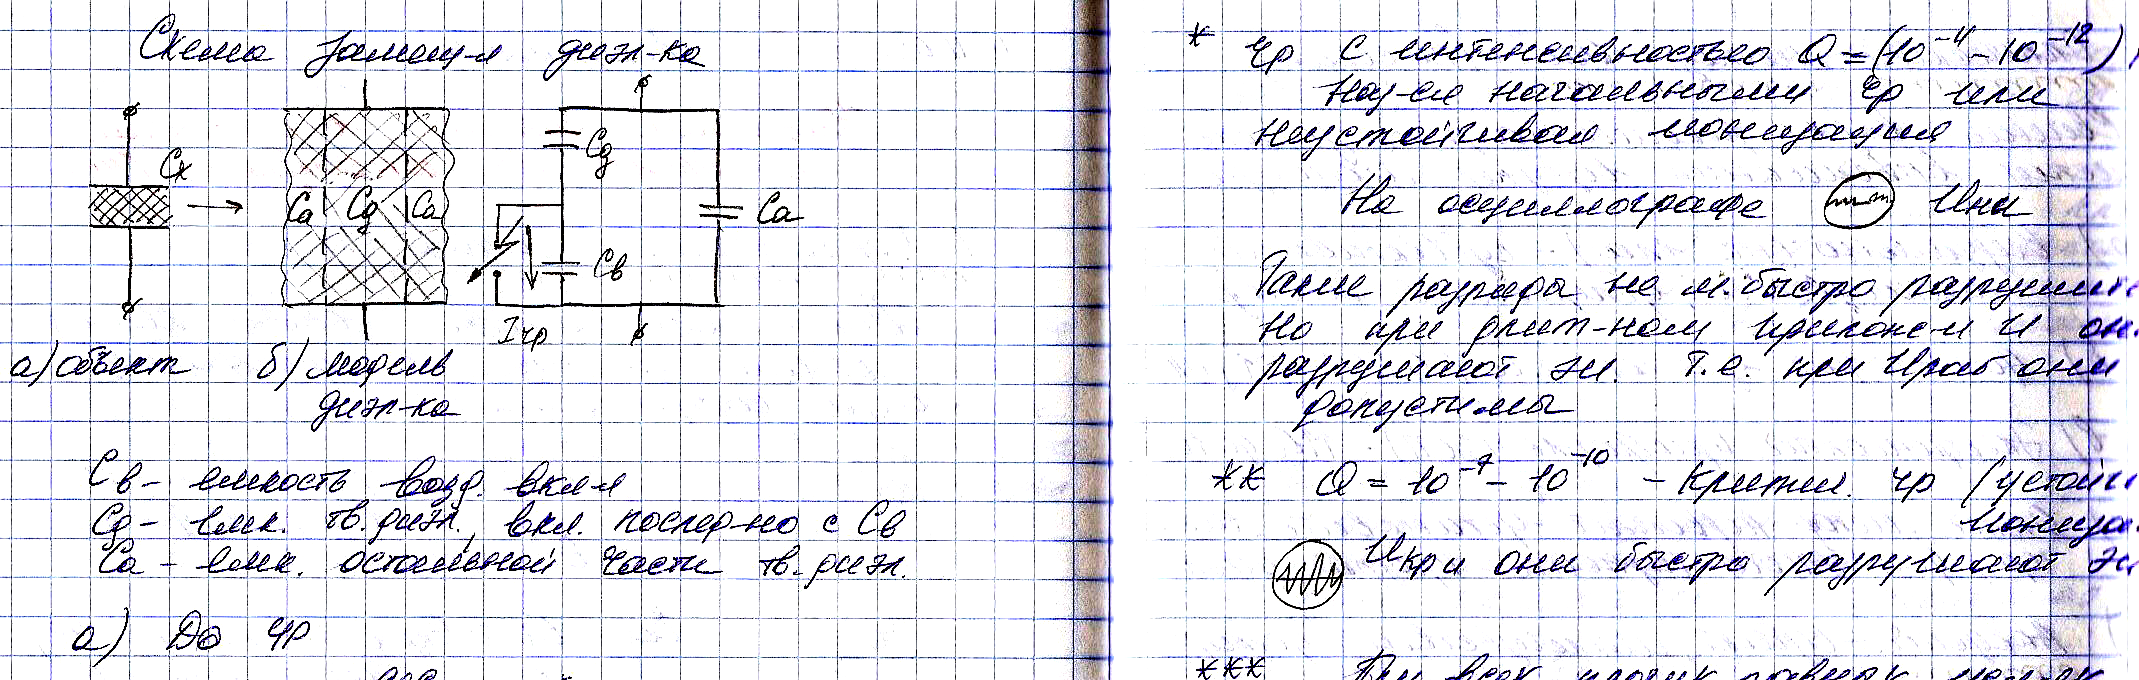 Схема замещ-я диэл-ка
Cx
Ca Cg Ca
Cg
Ca
Cв
Iчр
а) объект б) модель
диэл-ка
Cв - емкость возд. вкл-я
Cg - емк. тв. диэл., вкл. послед-но с Cв
Ca - емк. остальной части тв. диэл.
а) До ЧР
* ЧР с интенсивностью Q = (10⁻¹¹ - 10⁻¹²)
Наз-ся начальными ЧР или
неустойчивая ионизация
На осциллографе Uни
Такие разряды не м. быстро разрушить
но при длит-ном прилож-и U он
разрушают эи. Т.е. при Uраб они
допустимы
** Q = 10⁻⁷ - 10⁻¹⁰ - Критич. ЧР (устой
иониза
Uкр.и они быстро разрушают эи
*** При всех прочих равных